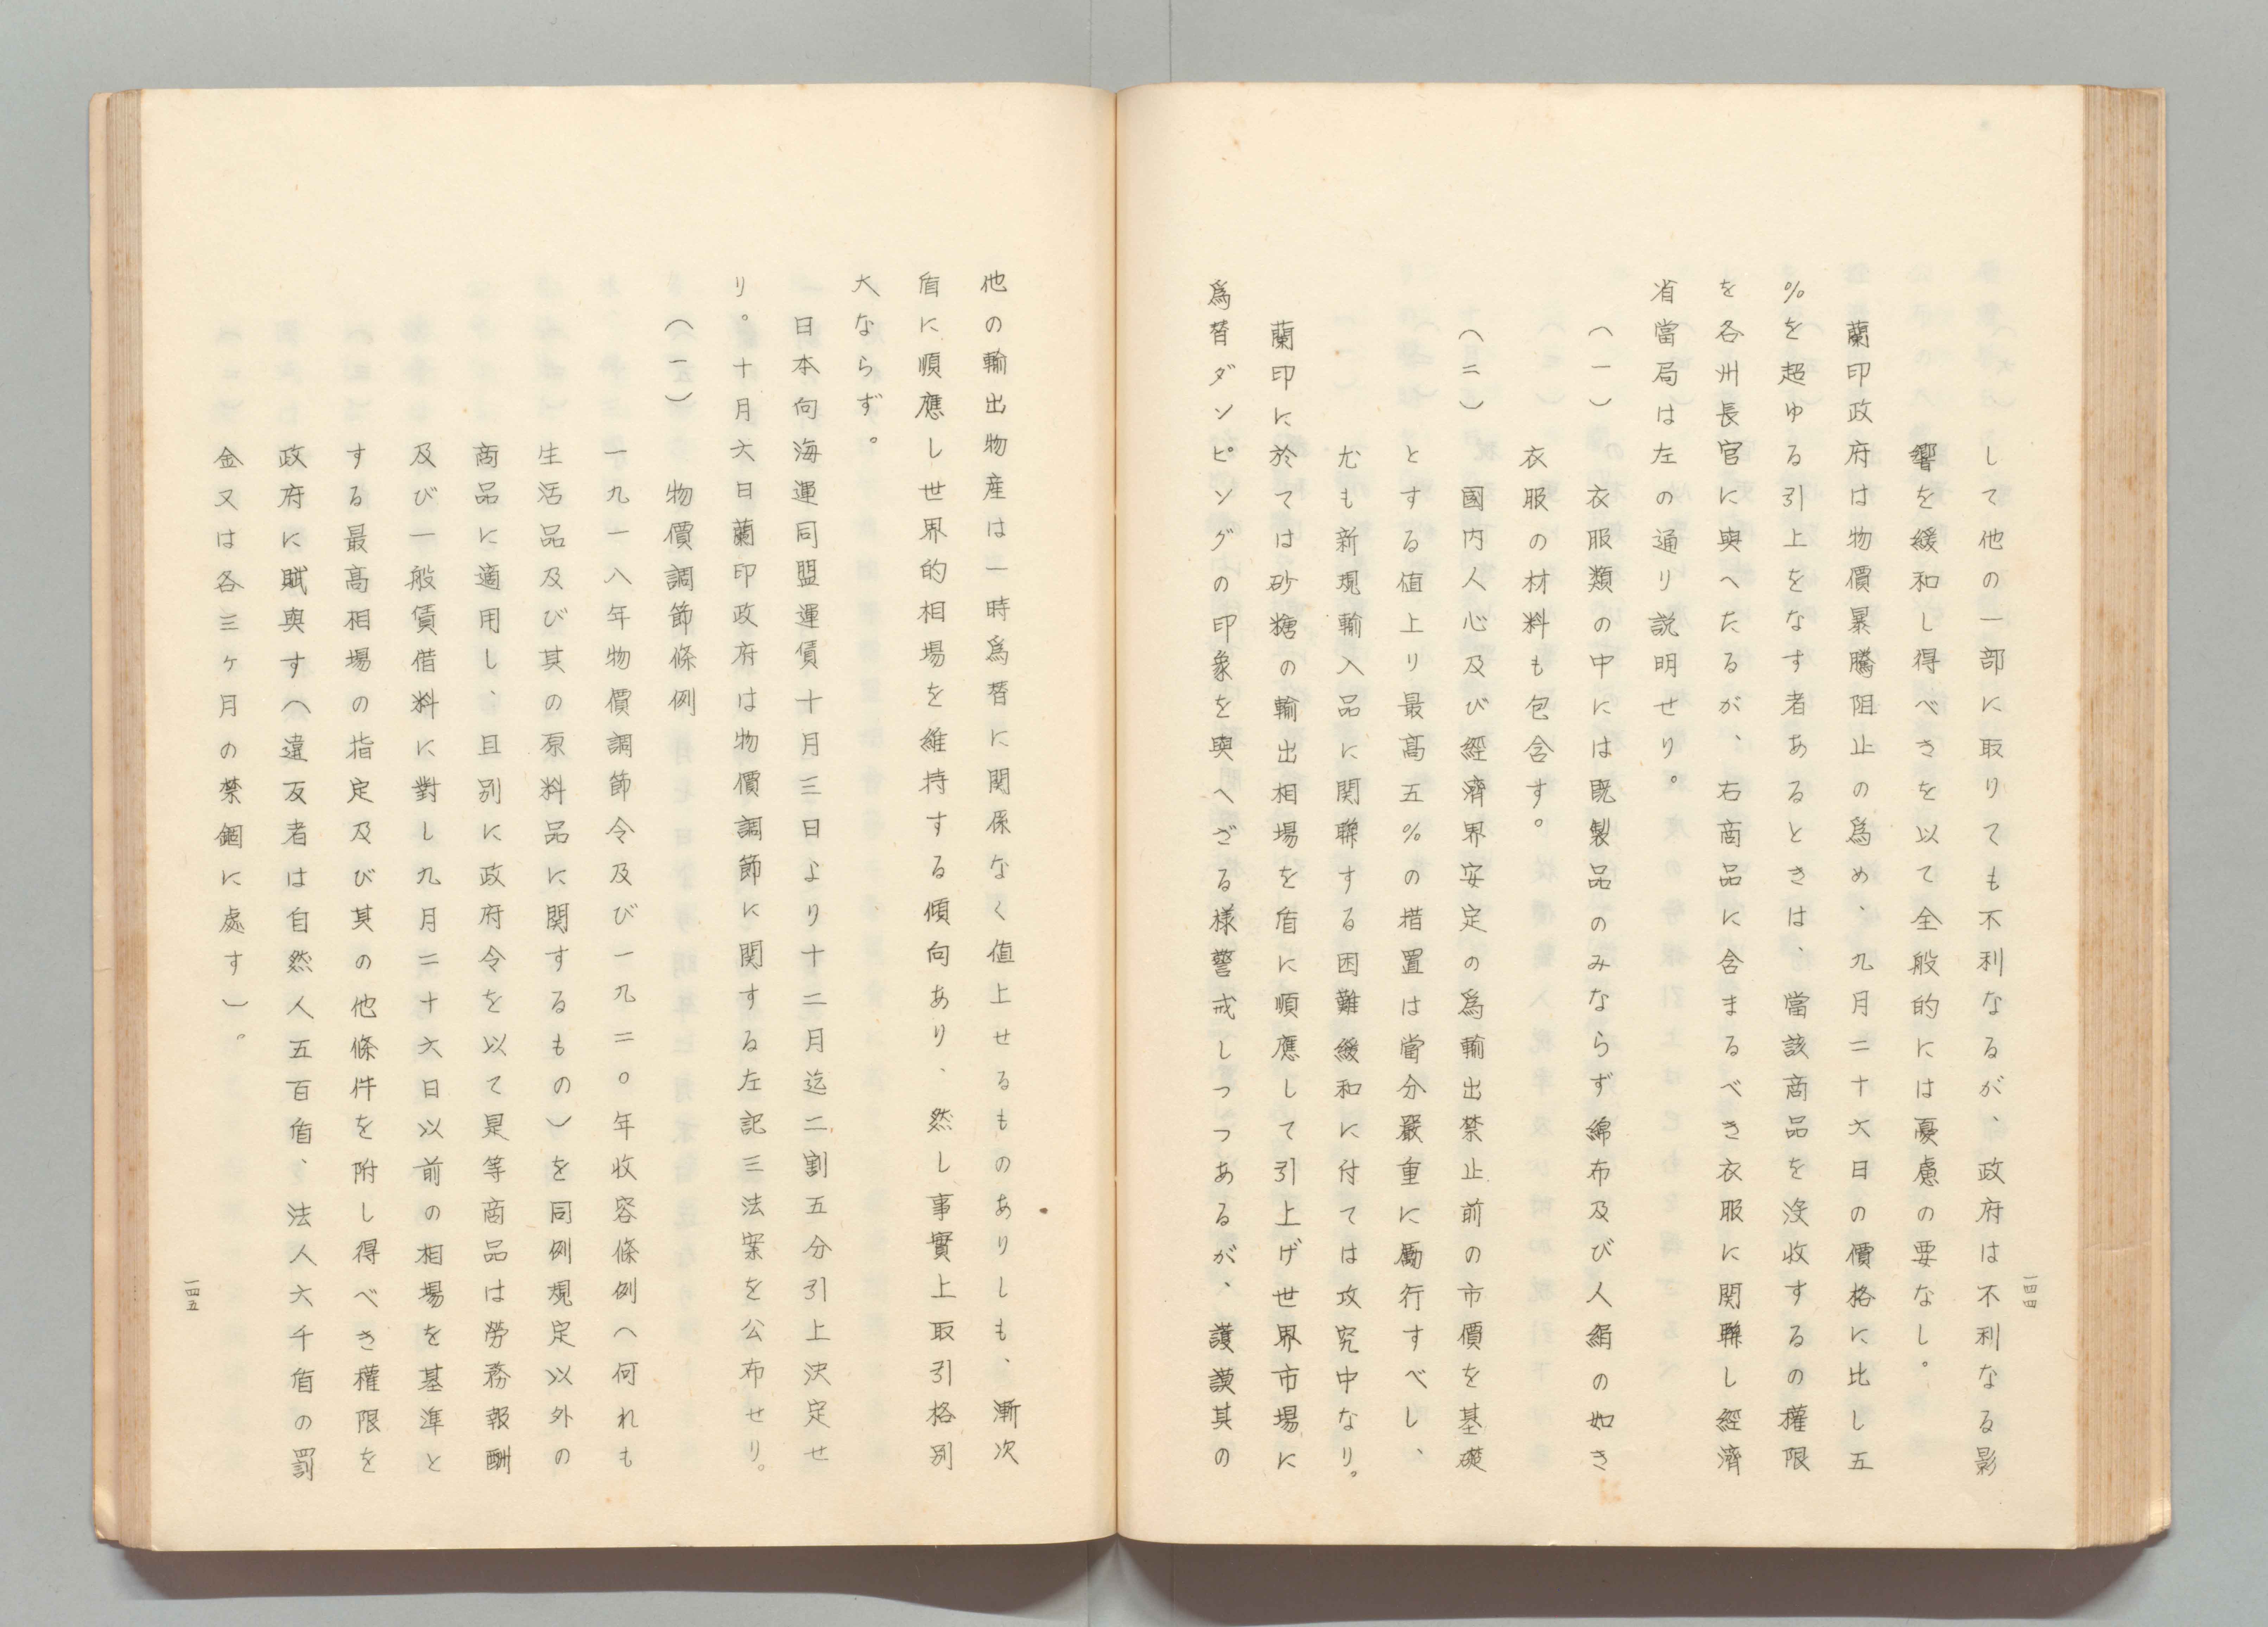 して他の一部に取りても不利なるが、政府は不利なる影
響を緩和し得べきを以て全般的には憂慮の要なし。
蘭印政府は物價暴騰阻止の爲め、九月二十六日の價格に比し五
％を超ゆる引上をなす者あるときは、當該商品を沒收するの權限
を各州長官に與へたるが、右商品に含まるべき衣服に関聯し經濟
省當局は左の通り説明せり。
（一）衣服類の中には既製品のみならず綿布及び人絹の如き
衣服の材料も包含す。
（二）國内人心及び經濟界安定の爲輸出禁止前の市價を基礎
とする値上り最高五％の措置は當分嚴重に勵行すべし、
尤も新規輸入品に関聯する困難緩和に付ては攻究中なり。
蘭印に於ては砂糖の輸出相場を盾に順應して引上げ世界市場に
爲替ダンピングの印象を與へざる様警戒しつつあるが、護謨其の
一四四
他の輸出物産は一時爲替に関係なく値上せるものありしも、漸次
盾に順應し世界的相場を維持する傾向あり、然し事實上取引格別
大ならず。
日本向海運同盟運賃十月三日より十二月迄二割五分引上決定せ
り。十月六日蘭印政府は物價調節に関する左記三法案を公布せり。
（一五）物價調節條例
一九一八年物價調節令及び一九二〇年收容條例（何れも
生活品及び其の原料品に関するもの）を同例規定以外の
商品に適用し、且別に政府令を以て是等商品は勞務報酬
及び一般賃借料に對し九月二十六日以前の相場を基準と
する最高相場の指定及び其の他條件を附し得べき權限を
政府に賦與す（違反者は自然人五百盾、法人六千盾の罰
金又は各三ヶ月の禁錮に處す）。
一四五